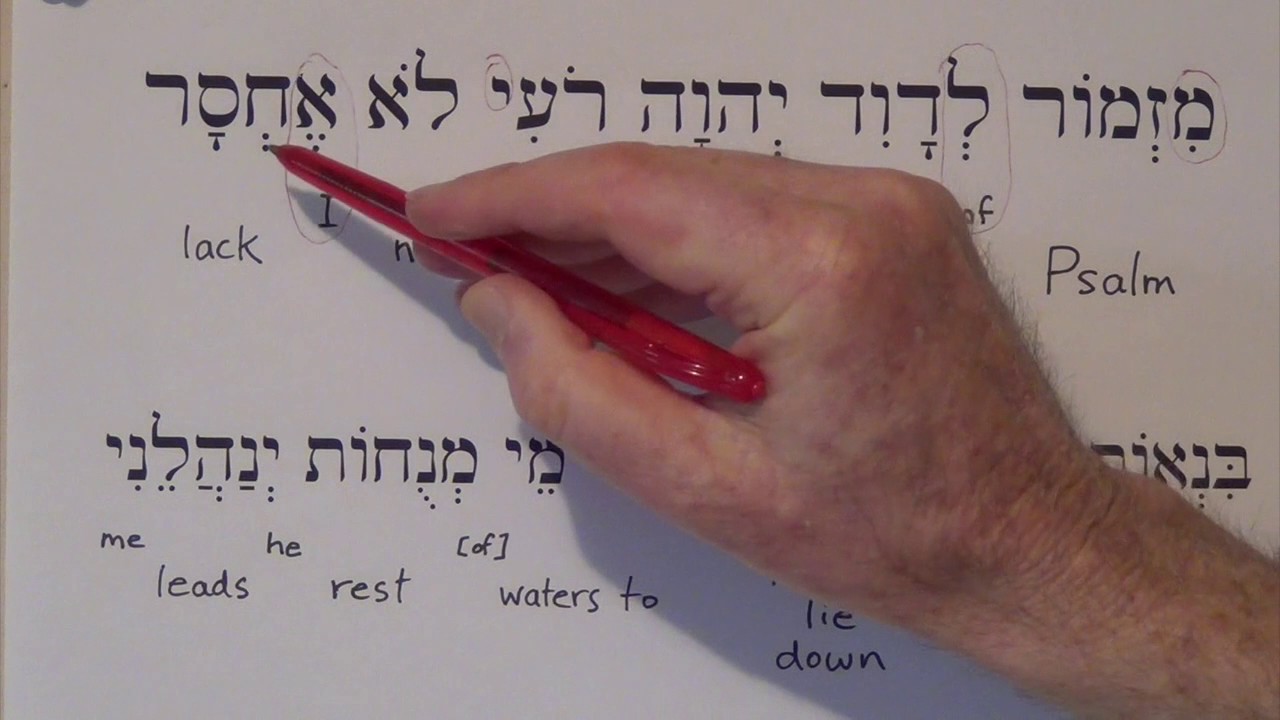 מִזְמוֹר לְדָוִד יְהוָה רֹעִי לֹא אֶחְסָר
I
lack Psalm
מֵי מְנֻחוֹת יְנַהֲלֵנִי
me he [of]
leads rest waters to
lie
down